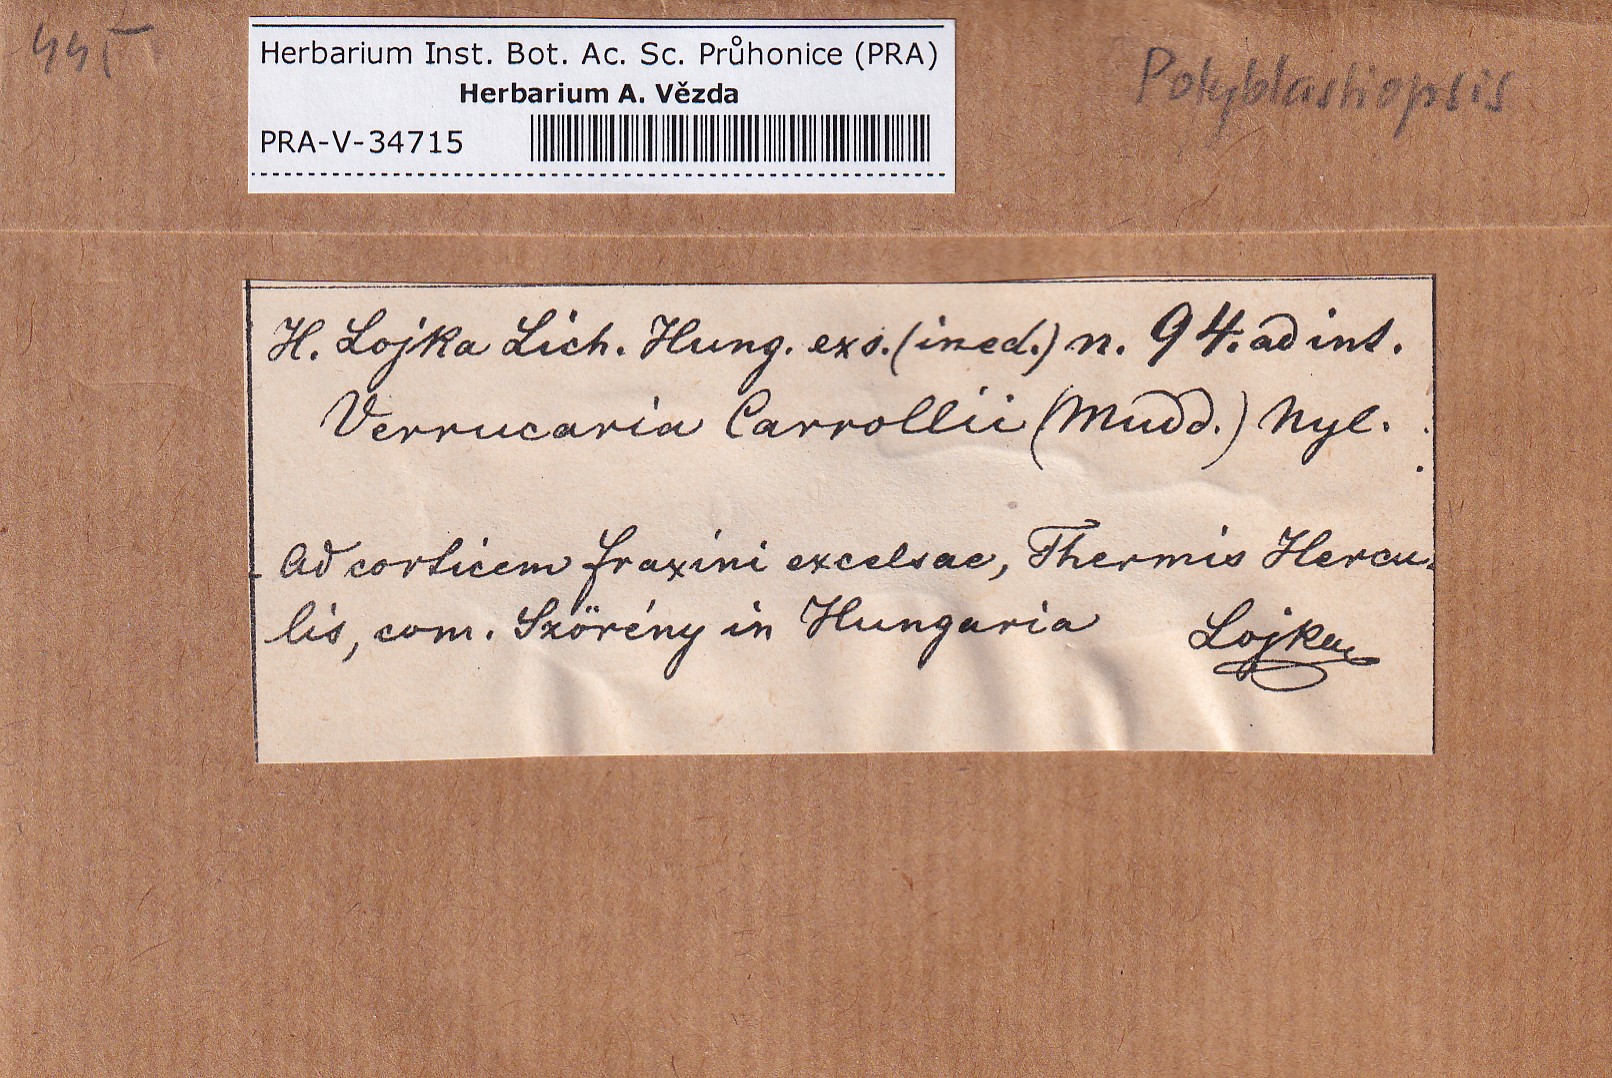 Herbarium Inst. Bot. Ac. Sc. Průhonice (PRA)
Herbarium A. Vězda
PRA-V-34715
Polyblastiopsis
H. Lojka Lich. Hung. exs. (ined.) n. 94. ad int.
Verrucaria Carrollii (Mudd.) Nyl.
Ad corticem fraxini excelsae, Thermis Hercu-
lis, com. Szörény in Hungaria Lojka